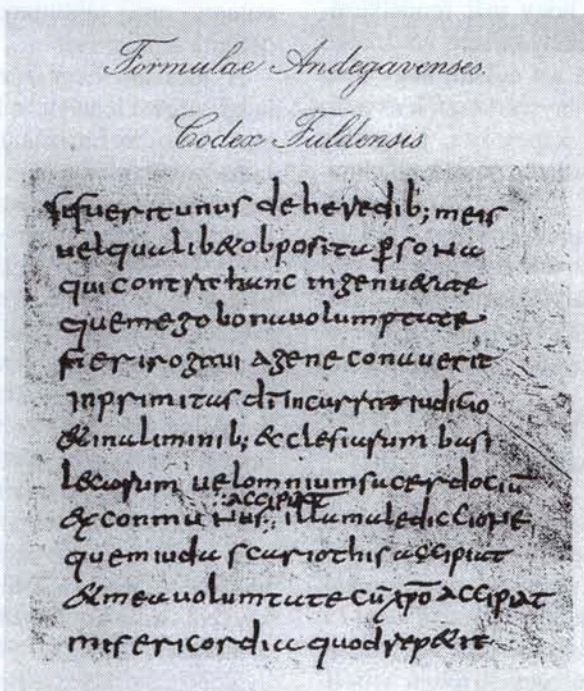 Formulae Andegavenses.
Codex Fuldensis
si fuerit unus de heredib; meis
uel qualib& obposita p̱sona
qui contra hanc ingenu&ate
quem ego bona uolumptate
fieri rogaui agene conauerit
inprimitus dī incurrat iudicio
& in aliminib; & clesiarum basi
lecarum uel omnium sacerdociū
accipiat
excommunus; illa malediccione
quem iuda scariothis accipiat
& mea uoluntate cū xp̄o accipiat
misericordia quod rep&it